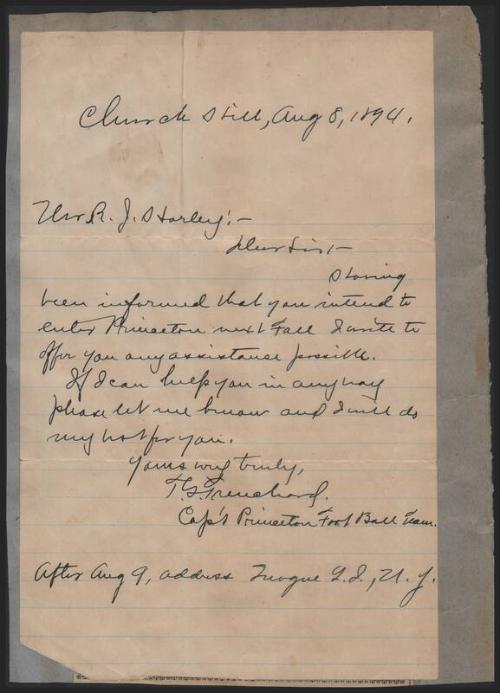 Church Hill, Aug 8, 1894.
Mr R. J. Harley:-
Dear Sir:-
Having
been informed that you intend to
enter Princeton next Fall I write to
offer you any assistance possible.
If I can help you in any way
please let me know and I will do
my best for you.
Yours very truly,
T. G. Trenchard.
Cap't Princeton Foot Ball Team.
After Aug 9, address Quogue L.I., N.Y.